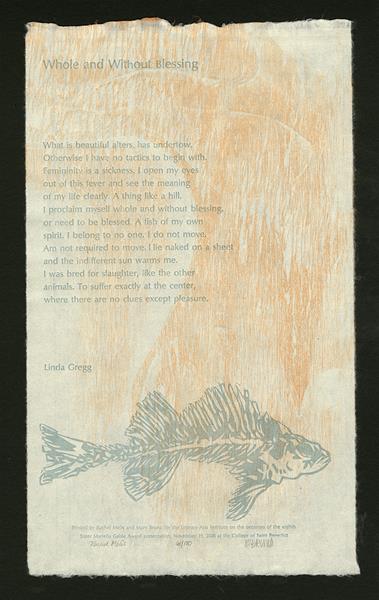 Whole and Without Blessing
What is beautiful alters, has undertow.
Otherwise I have no tactics to begin with.
Femininity is a sickness. I open my eyes
out of this fever and see the meaning
of my life clearly. A thing like a hill.
I proclaim myself whole and without blessing,
or need to be blessed. A fish of my own
spirit. I belong to no one. I do not move.
Am not required to move. I lie naked on a sheet
and the indifferent sun warms me.
I was bred for slaughter, like the other
animals. To suffer exactly at the center,
where there are no clues except pleasure.
Linda Gregg
Printed by Rachel Melis and Mary Bruno for the Literary Arts Institute on the occasion of the eighth
Sister Mariella Gable Award presentation, November 11, 2008 at the College of Saint Benedict
Rachel Melis /100